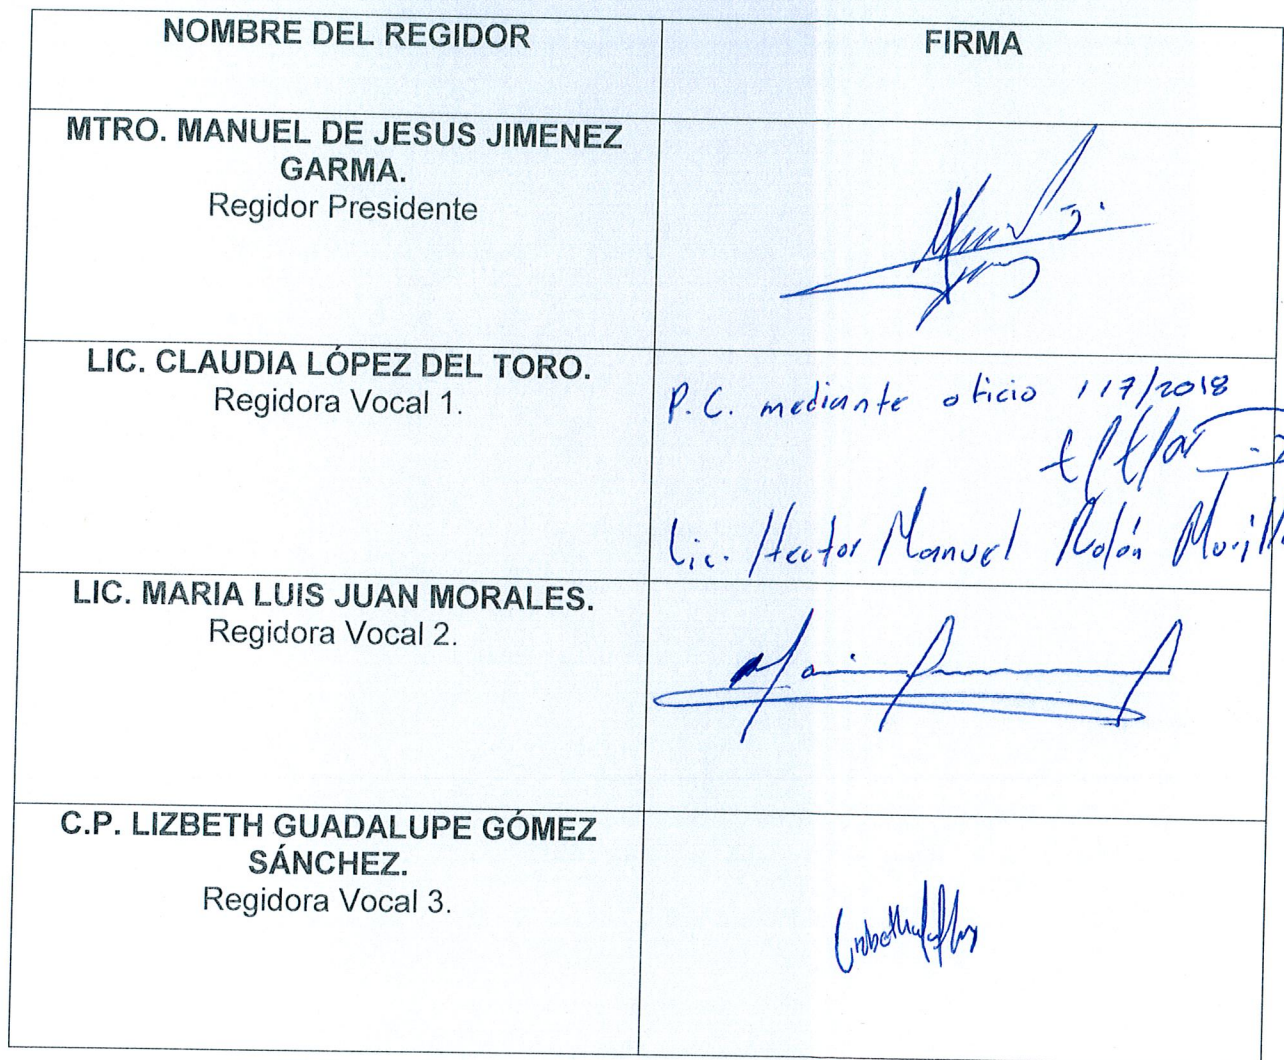 NOMBRE DEL REGIDOR
FIRMA
MTRO. MANUEL DE JESUS JIMENEZ
GARMA.
Regidor Presidente
LIC. CLAUDIA LÓPEZ DEL TORO.
Regidora Vocal 1.
P.C. mediante oficio 117/2018
Lic. Hector Manuel
LIC. MARIA LUIS JUAN MORALES.
Regidora Vocal 2.
C.P. LIZBETH GUADALUPE GÓMEZ
SÁNCHEZ.
Regidora Vocal 3.